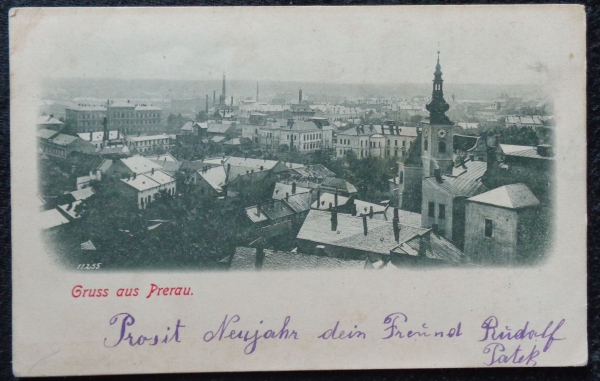 11255
Gruss aus Prerau.
Prosit Neujahr dein Freund Rudolf
Patek